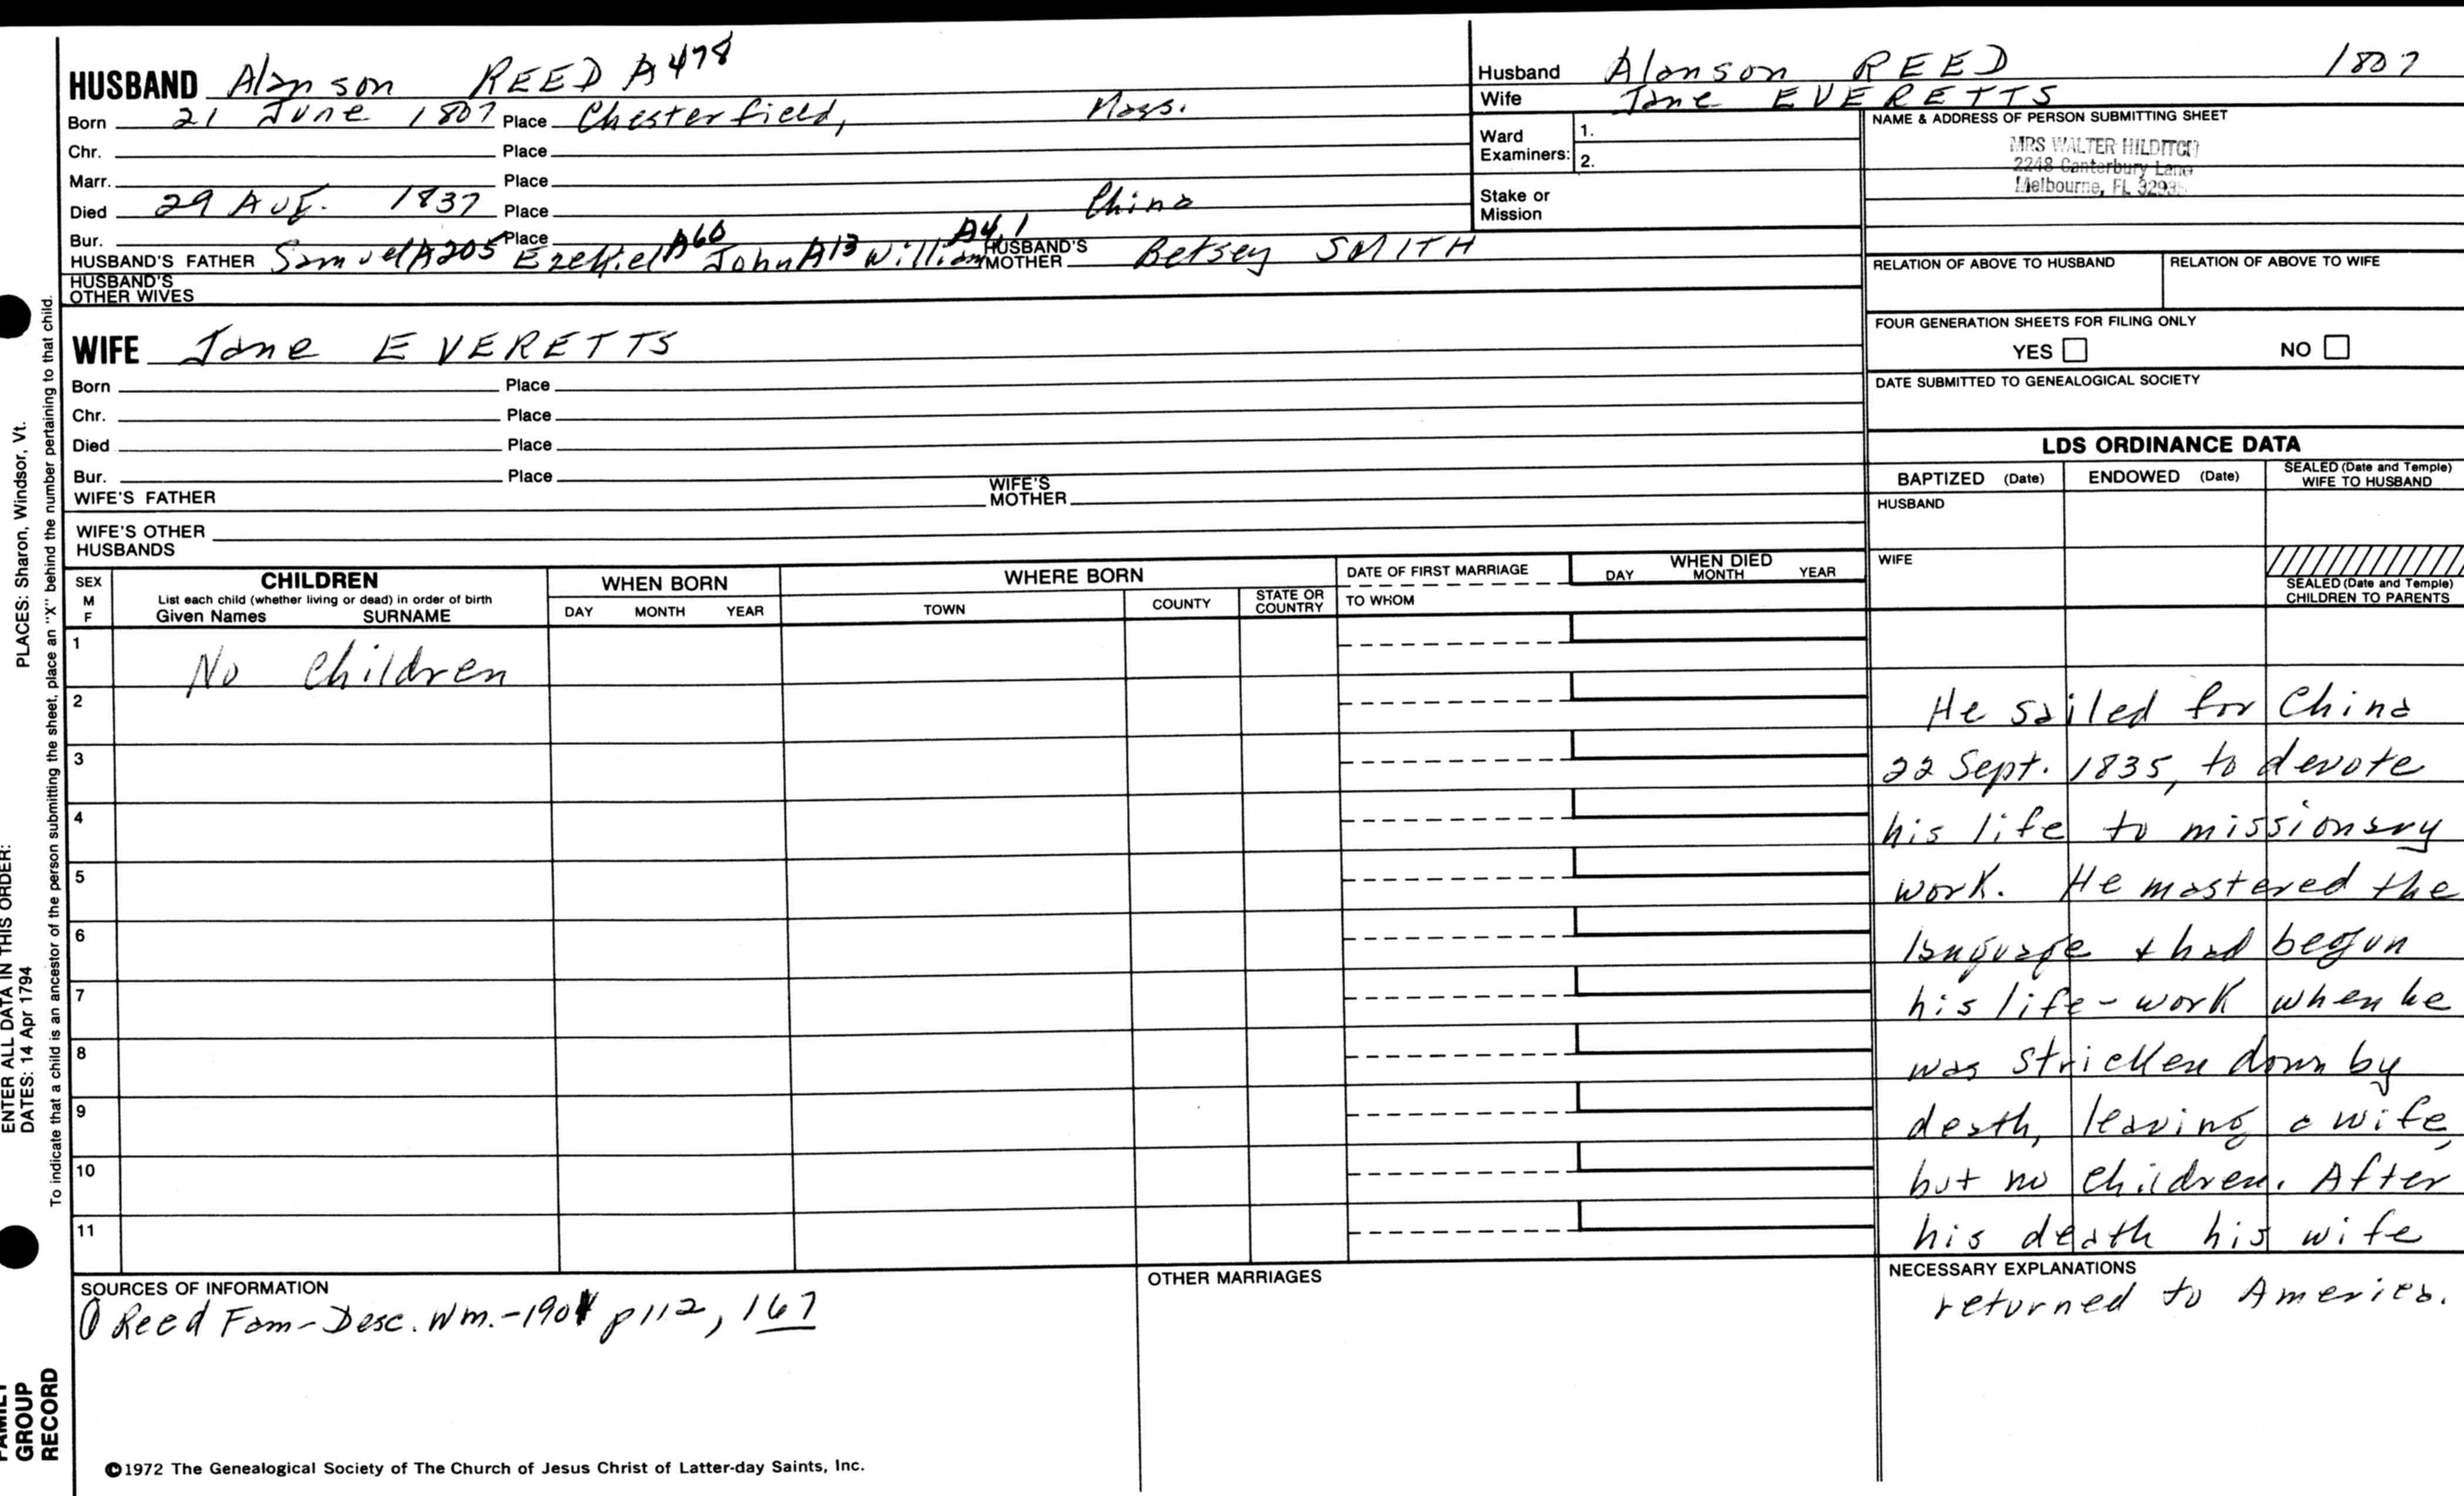 HUSBAND Alanson REED A478
Born 21 June 1807 Place Chesterfield, Mass.
Chr. Place
Marr. Place
Died 29 Aug. 1837 Place China
Bur. Place
HUSBAND'S FATHER Samuel A205 Ezekiel A60 John A13 William A4,1 HUSBAND'S MOTHER Betsey SMITH
HUSBAND'S OTHER WIVES
WIFE Jane EVERETTS
Born Place
Chr. Place
Died Place
Bur. Place
WIFE'S FATHER WIFE'S MOTHER
WIFE'S OTHER HUSBANDS
Husband Alanson REED 1807
Wife Jane EVERETTS
Ward Examiners: 1.
2.
Stake or Mission
NAME & ADDRESS OF PERSON SUBMITTING SHEET
MRS WALTER HILDITCH
2248 Canterbury Lane
Melbourne, FL 32935
RELATION OF ABOVE TO HUSBAND RELATION OF ABOVE TO WIFE
FOUR GENERATION SHEETS FOR FILING ONLY
YES NO
DATE SUBMITTED TO GENEALOGICAL SOCIETY
LDS ORDINANCE DATA
BAPTIZED (Date) ENDOWED (Date) SEALED (Date and Temple) WIFE TO HUSBAND
HUSBAND
WIFE
SEALED (Date and Temple) CHILDREN TO PARENTS
SEX M F
CHILDREN
List each child (whether living or dead) in order of birth
Given Names SURNAME
WHEN BORN
DAY MONTH YEAR
WHERE BORN
TOWN COUNTY STATE OR COUNTRY
DATE OF FIRST MARRIAGE
TO WHOM
WHEN DIED
DAY MONTH YEAR
1 No Children
2
3
4
5
6
7
8
9
10
11
He sailed for China
22 Sept. 1835, to devote
his life to missionary
work. He mastered the
language & had begun
his life-work when he
was stricken down by
death, leaving a wife,
but no children. After
his death his wife
NECESSARY EXPLANATIONS
returned to America.
SOURCES OF INFORMATION
Reed Fam-Desc. Wm.-1901 p112, 167
OTHER MARRIAGES
©1972 The Genealogical Society of The Church of Jesus Christ of Latter-day Saints, Inc.
PLACES: Sharon, Windsor, Vt.
ENTER ALL DATA IN THIS ORDER:
DATES: 14 Apr 1794
To indicate that a child is an ancestor of the person submitting the sheet, place an "X" behind the number pertaining to that child.
FAMILY
GROUP
RECORD